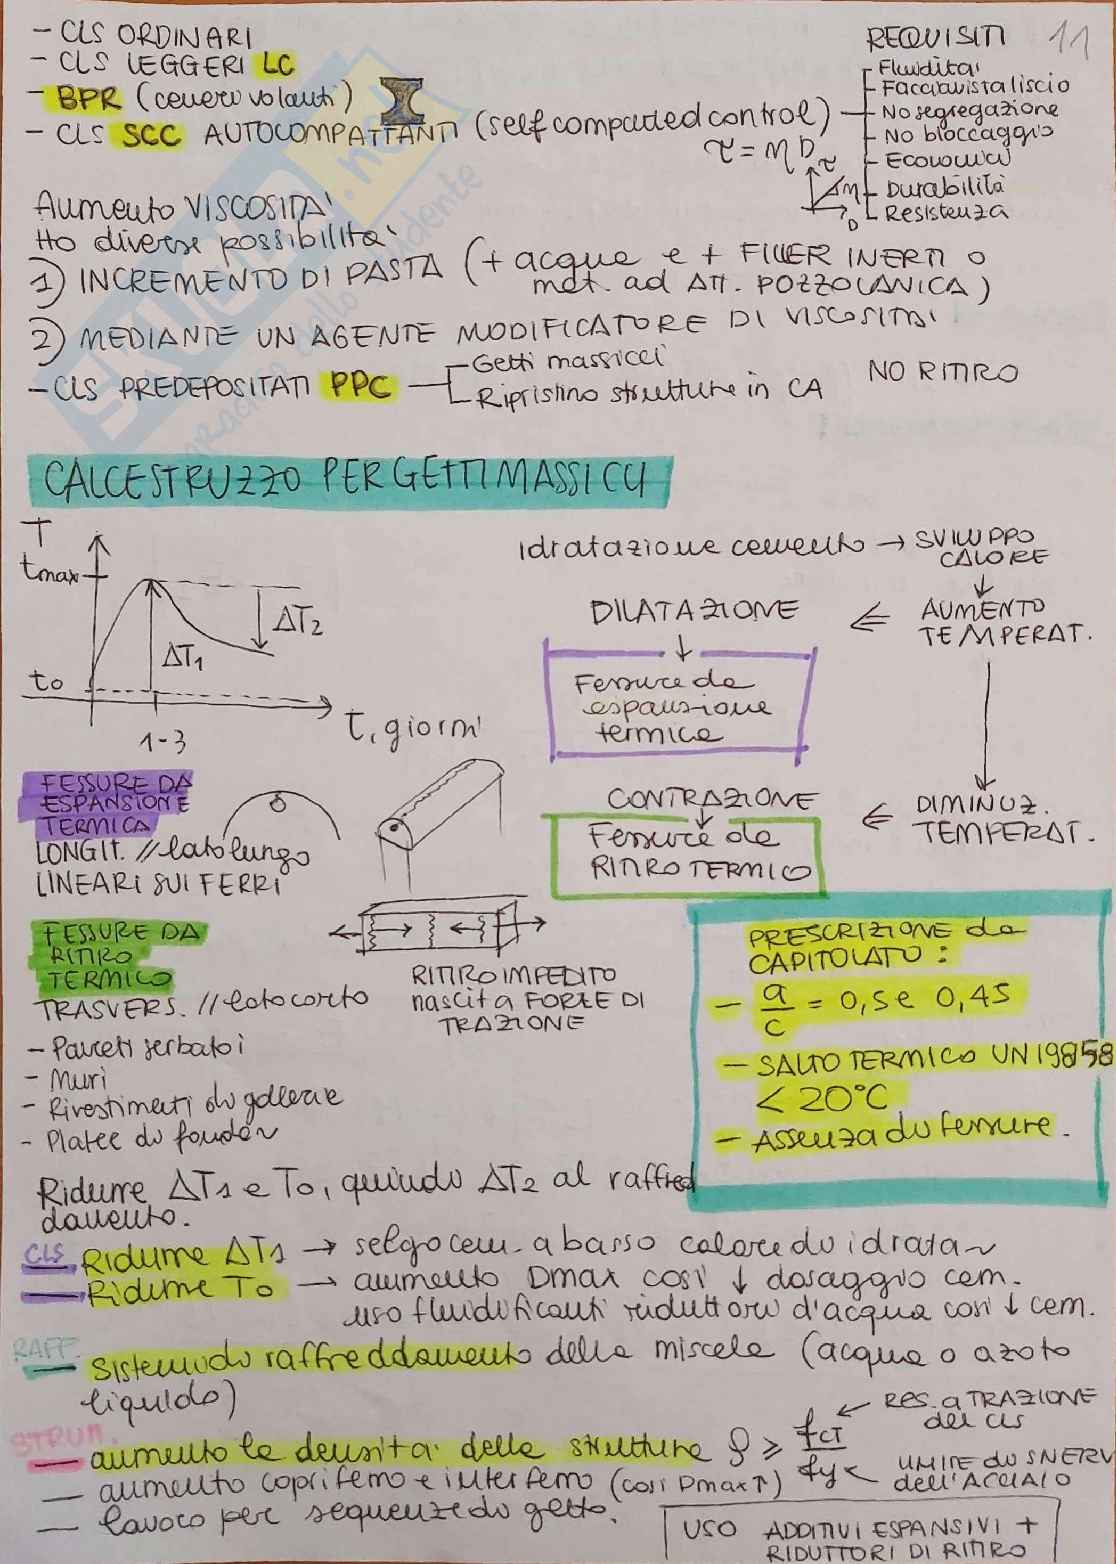 - CLS ORDINARI
- CLS LEGGERI LC
- BPR (ceneri volanti)
- CLS SCC AUTOCOMPATTANTI (self compacted control)
REQUISITI 11
Fluidità
Facciavista liscio
No segregazione
No bloccaggio
Economici
Durabilità
Resistenza
τ = η D
τ
η
D
Aumento VISCOSITA'
Ho diverse possibilità
1) INCREMENTO DI PASTA (+ acqua e + FILLER INERTI o
mat. ad ATT. POZZOLANICA)
2) MEDIANTE UN AGENTE MODIFICATORE DI VISCOSITA'
- CLS PREDEPOSITATI PPC
Getti massicci
Ripristino strutture in CA
NO RITIRO
CALCESTRUZZO PER GETTI MASSICCI
T
tmax
to
ΔT1
ΔT2
1-3
t, giorni
Idratazione cemento → SVILUPPO
CALORE
DILATAZIONE ⇐ AUMENTO
TEMPERAT.
Fessure da
espansione
termica
CONTRAZIONE ⇐ DIMINUZ.
TEMPERAT.
Fessure da
RITIRO TERMICO
FESSURE DA
ESPANSIONE
TERMICA
LONGIT. // lato lungo
LINEARI SUI FERRI
FESSURE DA
RITIRO
TERMICO
TRASVERS. // lato corto
RITIRO IMPEDITO
nascita FORZE DI
TRAZIONE
- Pareti serbatoi
- Muri
- Rivestimenti di gallerie
- Platee di fondaz
PRESCRIZIONE da
CAPITOLATO:
- a/c = 0,5 e 0,45
- SALTO TERMICO UNI 9858
< 20°C
- Assenza di fessure.
Ridurre ΔT1 e To, quindi ΔT2 al raffred
damento.
CLS Ridurre ΔT1 → selgo cem. a basso calore di idrataz
Ridurre To → aumento Dmax così ↓ dosaggio cem.
uso fluidificanti riduttori d'acqua così ↓ cem.
RAFF. Sistemi di raffreddamento della miscela (acqua o azoto
liquido)
STRUTT. aumento la densità della struttura ρ ≥ fCT/fy
RES. a TRAZIONE
del cls
LIMITE di SNERV
dell'ACCIAIO
- aumento copriferro e interferro (così Dmax↑)
- lavoro per sequenze di getto.
USO ADDITIVI ESPANSIVI +
RIDUTTORI DI RITIRO